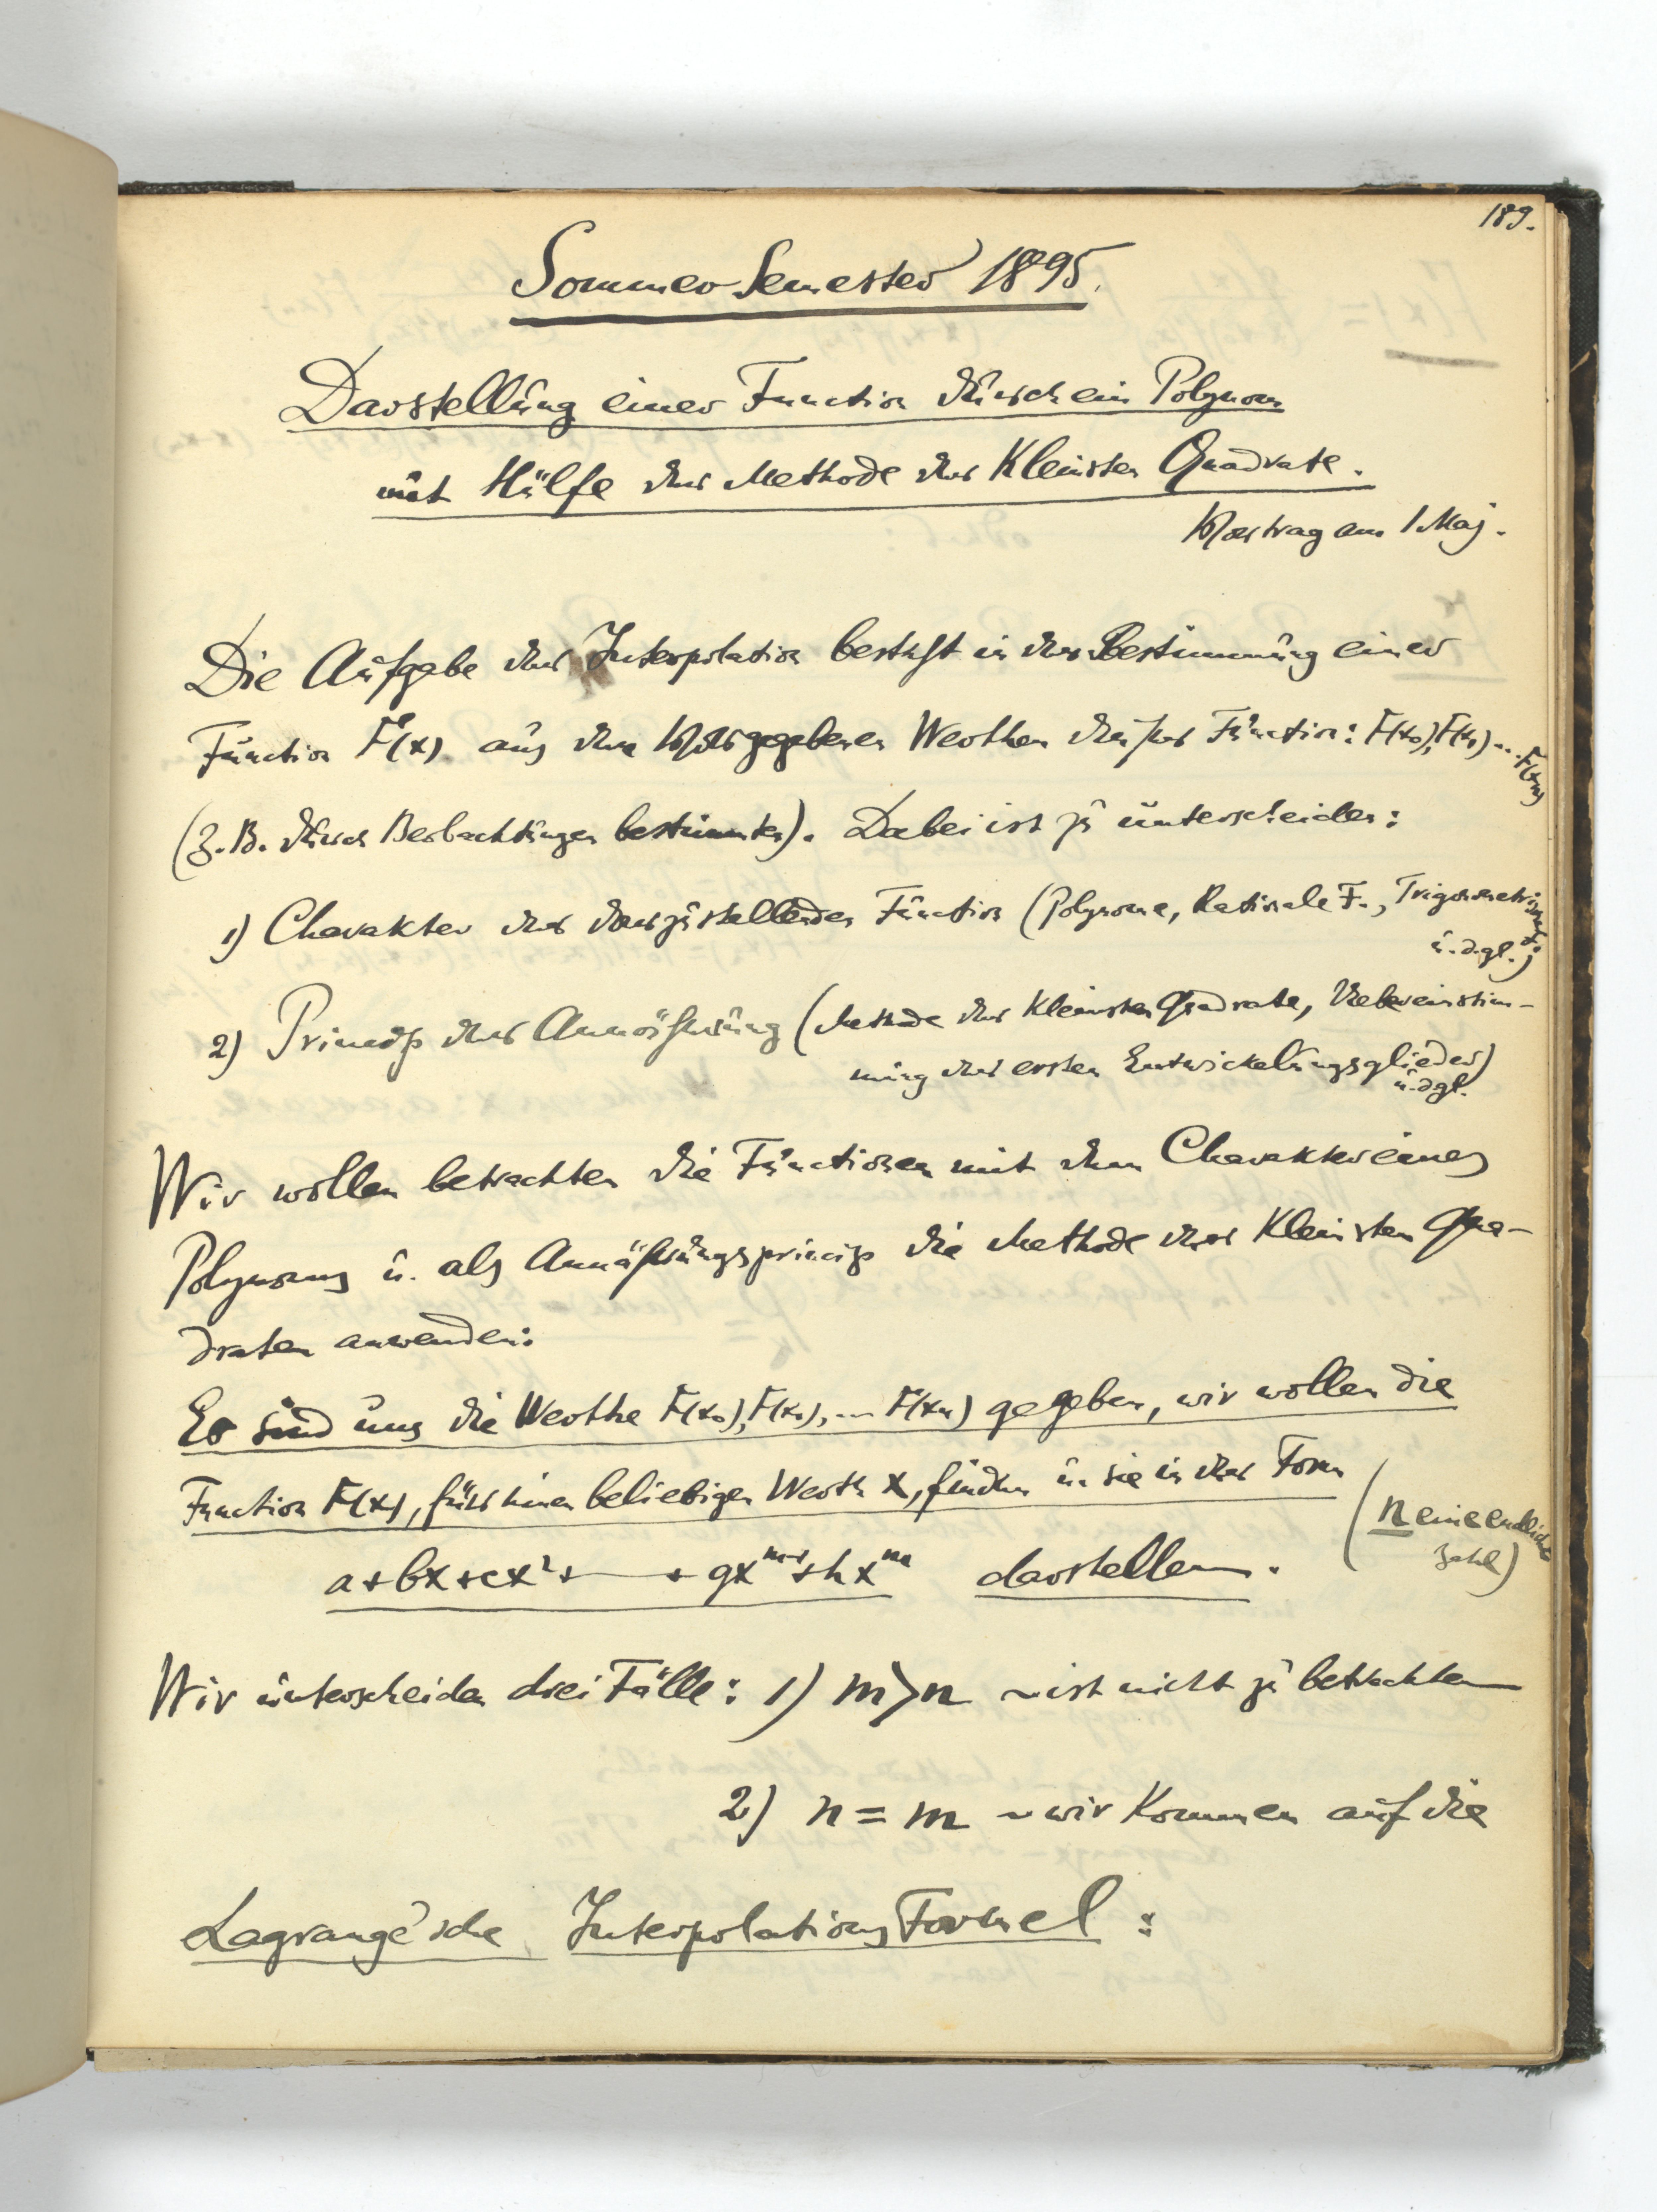 189.
Sommer Semester 1895.
Darstellung einer Function durch ein Polynom
mit Hülfe der Methode der Kleinsten Quadrate.
Vortrag am 1 Maj.
Die Aufgabe der Interpolation besteht in der Bestimmung einer
Function F(x) aus den vorgegebenen Werthen dieser Function: F(x₀), F(x₁) ... F(xₙ)
(z. B. durch Beobachtungen bestimmten). Dabei ist zu unterscheiden:
1) Charakter der darzustellenden Function (Polynome, Rationale F., Trigonometrische F.
u. dgl.)
2) Princip der Annäherung (Methode der Kleinsten Quadrate, Uebereinstim-
mung der ersten Entwickelungsglieder)
u. dgl.
Wir wollen betrachten die Functionen mit dem Charakter eines
Polynoms u. als Annäherungsprincip die Methode der Kleinsten Qua-
draten anwenden:
Es sind uns die Werthe F(x₀), F(x₁), ... F(xₙ) gegeben, wir wollen die
Function F(x), für einen beliebigen Werth x, finden u. sie in der Form
(n eine endliche
Zahl)
a + bx + cx² + — + gxᵐ⁻¹ + hxᵐ darstellen.
Wir unterscheiden drei Fälle: 1) m > n ~ ist nicht zu betrachten
2) n = m ~ wir Kommen auf die
Lagrange'sche InterpolationsFormel: